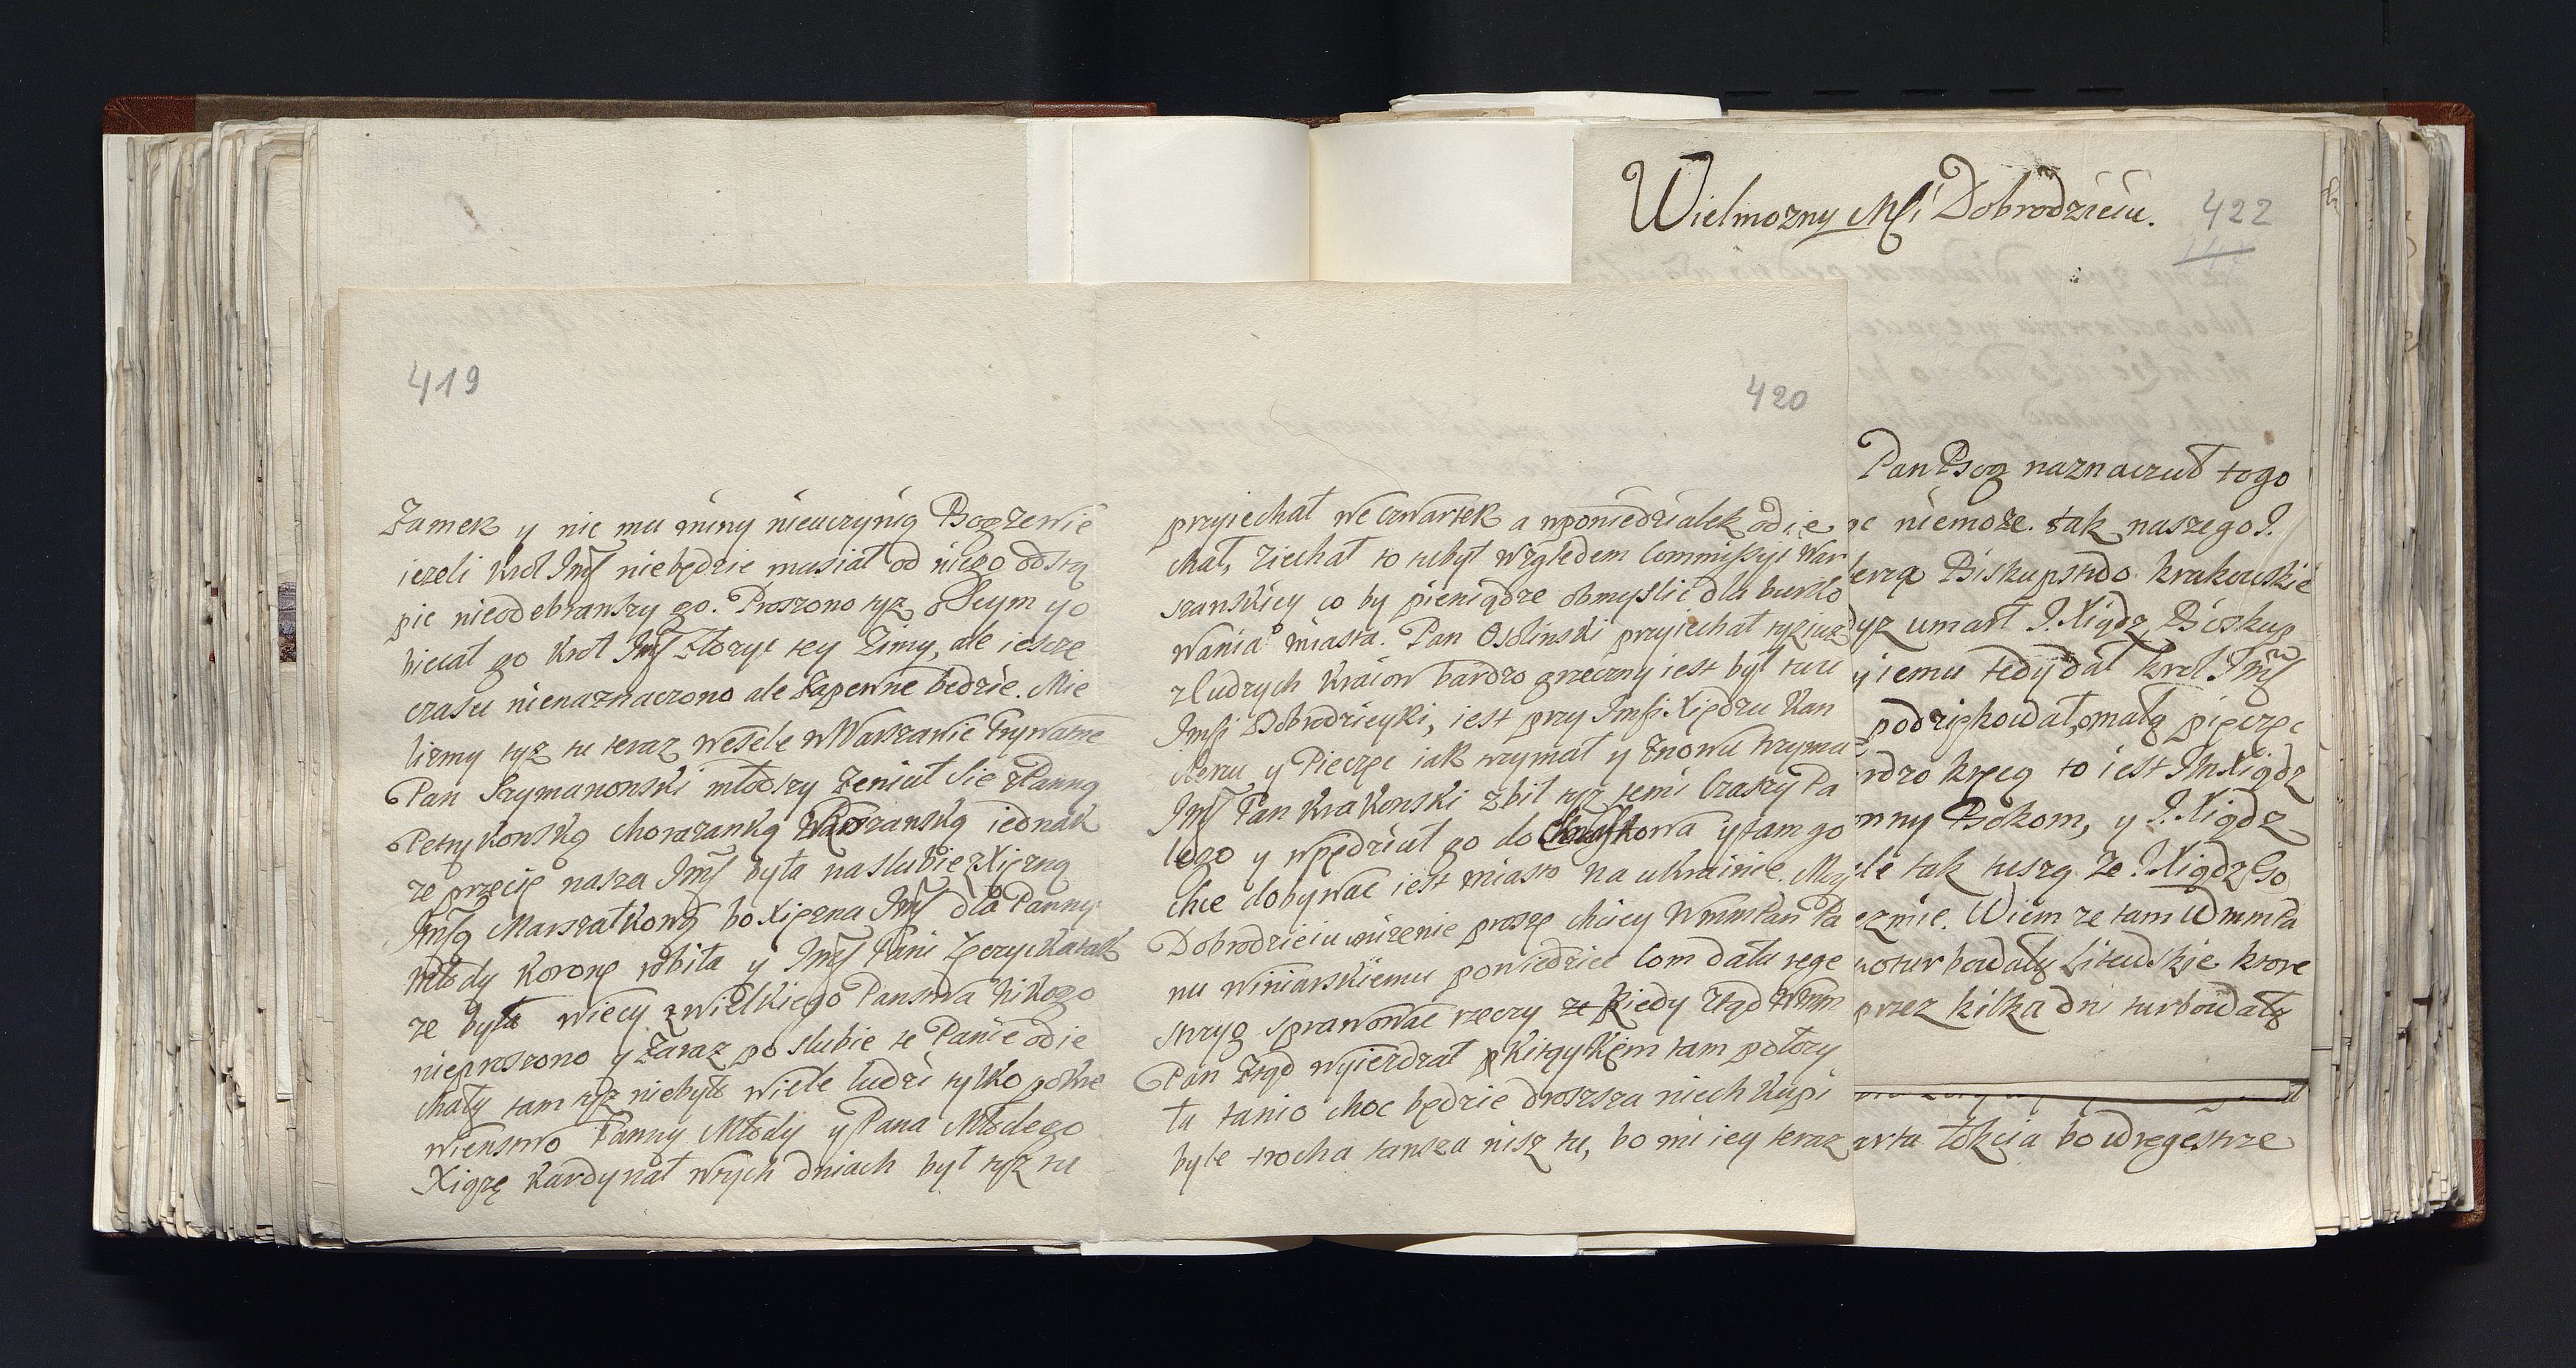 419
Zamek y nic mu winy nieuczynią Bogzewie
iezeli Krol Jmś niebędzie musiał od niego odstą
pic nieodebrawszy go. Proszono tyz o Seym yo
biecał go Krol Jmś złozyc tey Zimy, ale iescze
czasu nienaznaczono ale Zapewne bedzie. Mie
lismy tyz tu teraz Wesele w Warszawie Prywatne
Pan Szymanowski młodszy Zeniuł Sie z Panną
Petrykowską chorązanką Warszawską iednak
ze przecię nasza Jmś była naslubie z Xięzną
Jmśą Marszałkową bo Xięzna Jmś dla Panny
Młody Koronę robiła y Jmś Pani
ze była wiecy z wielkiego Panstwa Nikogo
nieproszono y Zaraz po slubie te Panie odie
chały tam tyz niebyło wiele ludzi tylko pokre
wienstwo Panny Młody y Pana Młodego
Xiąze Kardynał wtych dniach był tyz tu
420
przyiechał we Czwartek a wponiedziałek odie
chał, Ziechał to tubył względem Commissyi War
szawskiey co by pieniądze obmyslic dla bruko
wania miasta. Pan Osolinski przyiechał tyz iuz
z Cudzych Kraiow bardzo grzeczny iest był tu u
Jmśi Dobrodzieyki, iest przy Jmśi Xiędzu Kan
clerzu y Pieczęc iak trzymał y Znowu trzyma
Jmś Pan Krakowski zbił tyz temi Czasy Pa
lego y wpędziuł go do y tam go
chce dobywac iest miasto na ukrainie. Moy
Dobrodzieiu unizenie proszę chciey Wmm Pan Pa
nu Winiarskiemu powiedziec Com dała rege
stryg sprawowac rzeczy ze kiedy ztąd Wmm
Pan Ztąd wyiezdzał p Kitaykęm tam połozy
ła tanio choc będzie drozsza niech Kupi
byle trocha tansza nisz tu, bo mi iey teraz
Wielmozny Mśi Dobrodzieiu.
422
Pan Bog naznaczuł tego
niemoze. tak naszego J.
Biskupstwo krakowskie
umarł J. Xiądz Biskup
iemu tedy dał krol Jmś
podziękował, małą pięczęc
kręcą to iest Jm Xiądz
Bokom, y J. Xiądz
tak tuszą Ze J. Xiądz Go
Wiem ze tam Wmm Pa
Litewskie ktore
przez kilka dni turbowały
łokcia bo w regestrze